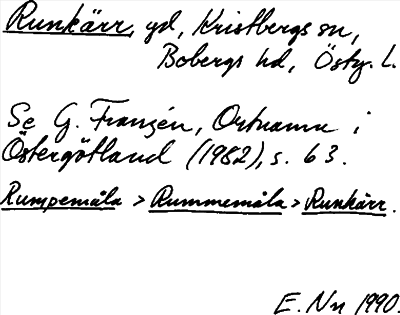 Runkärr, gd, Kristbergs sn,
Bobergs hd, Östg. l.
Se G. Franzén, Ortnamn i
Östergötland (1982), s. 63.
Rumpemåla > Rummemåla > Runkärr.
E. Nn 1990.